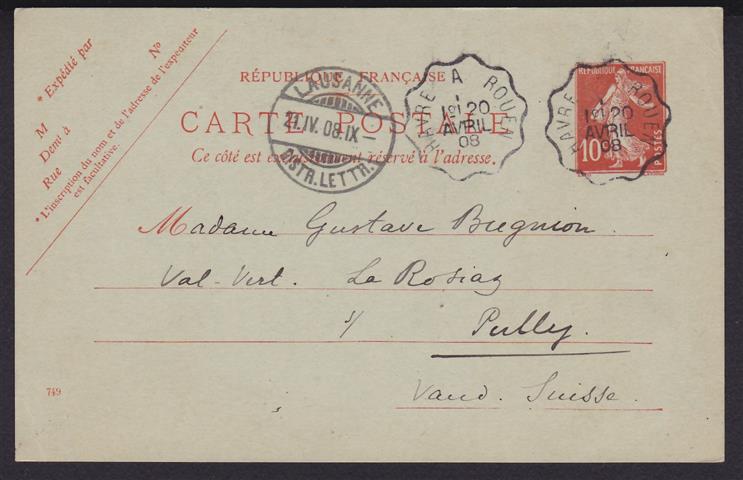 * Expédié par
N°
M
Demt à
Rue
* L'inscription du nom et de l'adresse de l'expéditeur
est facultative.
RÉPUBLIQUE FRANÇAISE
CARTE POSTALE
Ce côté est exclusivement réservé à l'adresse.
LAUSANNE
21.IV.08.IX
DISTR.LETTR.
HAVRE A ROUEN
1°
20
AVRIL
08
RÉPUBLIQUE FRANÇAISE
10
POSTES
HAVRE ROUEN
1°
20
AVRIL
08
Madame Gustave Bugnion
Val-Vert. La Rosiaz
s/ Pully.
Vaud. Suisse.
749